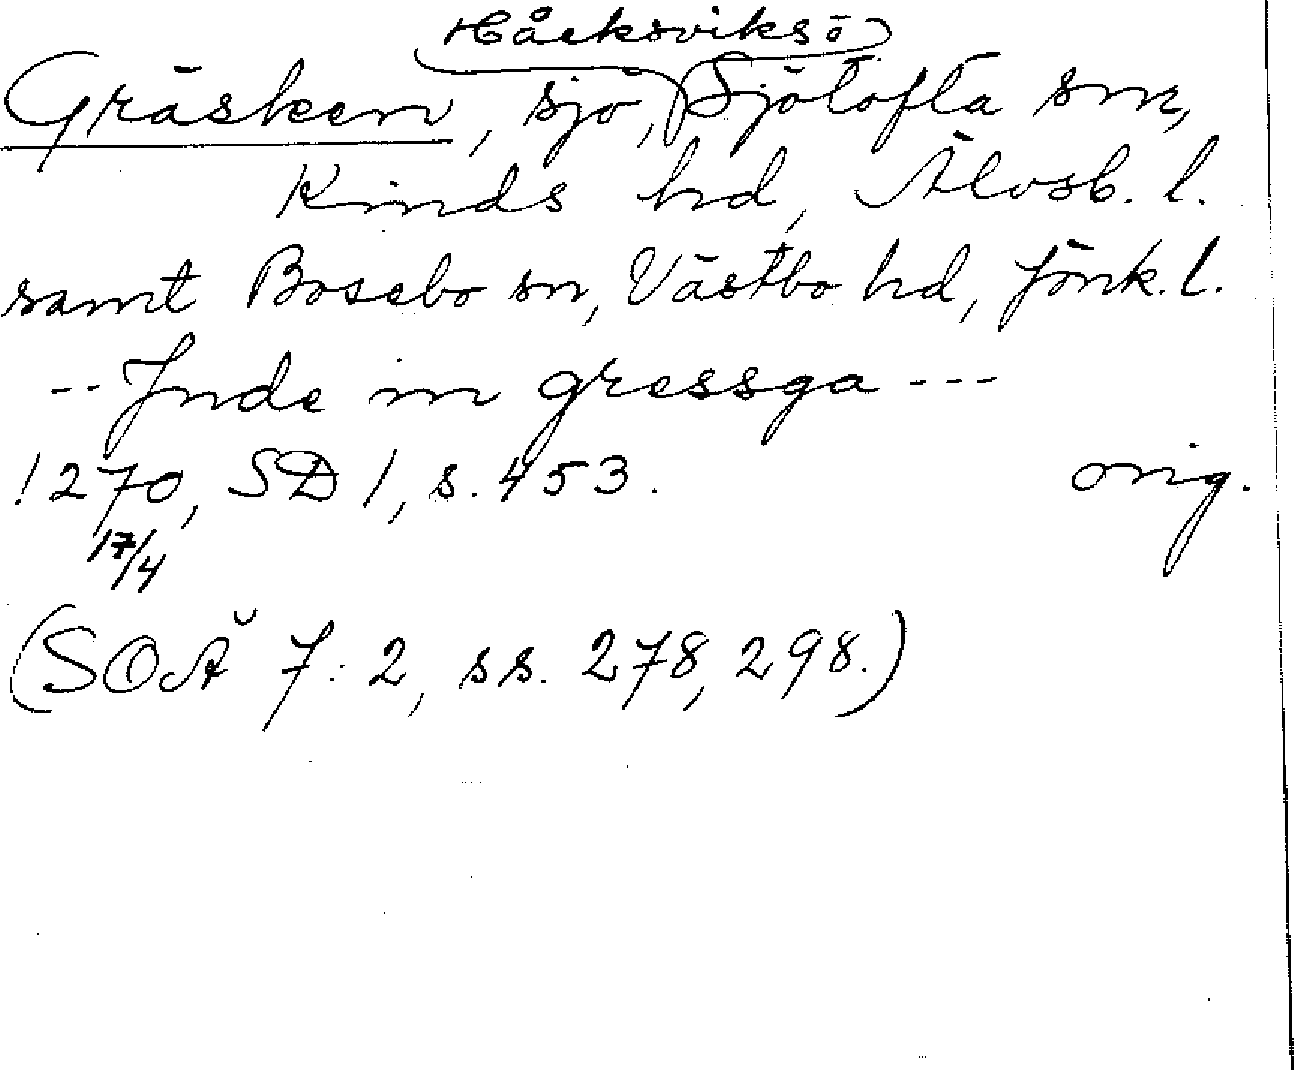 Håcksviks o
Gräsken, sjö, Sjötofta snr,
Kinds hd, Älvsb. l.
samt Bosebo sn, Västbo hd, Jönk. l.
-- Inde in gressga ---
1270, SD 1, s. 453. orig.
17/4
(SOÄ 7: 2, ss. 278, 298.)